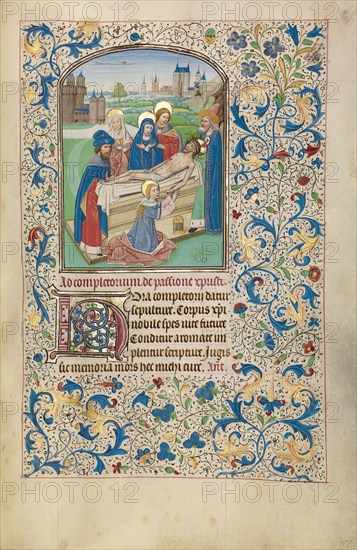 Ad completorium. de passione xpristi
Hora completorii datur
sepulture. Corpus xpi
nobile spes vite future
Conditur aromate im
plentur scripture. Jugis
sit memoria mors hec michi cure. Ant.
PHOTO12 PHOTO12 PHOTO12